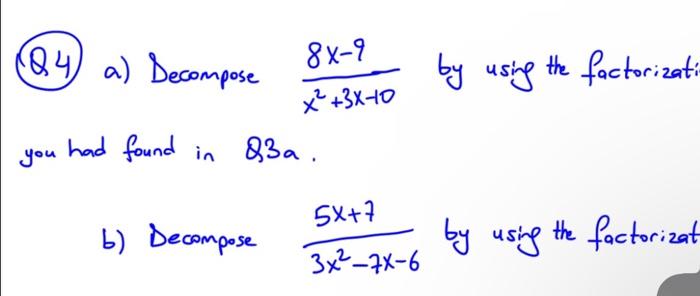 Q4 a) Decompose (8x-9)/(x²+3x-10) by using the factorizati
you had found in Q3a.
b) Decompose (5x+7)/(3x²-7x-6) by using the factorizat